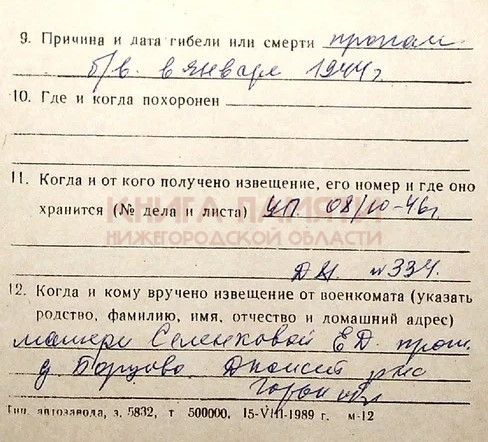 9. Причина и дата гибели или смерти пропал
б/в. в январе 1944г.
10. Где и когда похоронен
11. Когда и от кого получено извещение, его номер и где оно
хранится (№ дела и листа) УП. 08/10-46г.
КНИГА ПАМЯТИ
НИЖЕГОРОДСКОЙ ОБЛАСТИ
№334.
12. Когда и кому вручено извещение от военкомата (указать
родство, фамилию, имя, отчество и домашний адрес)
матери Селенковой Е.Д. прож.
д. Борцово
Горьк обл
Тип. автозавода, з. 5832, т 500000, 15-VIII-1989 г. м-12